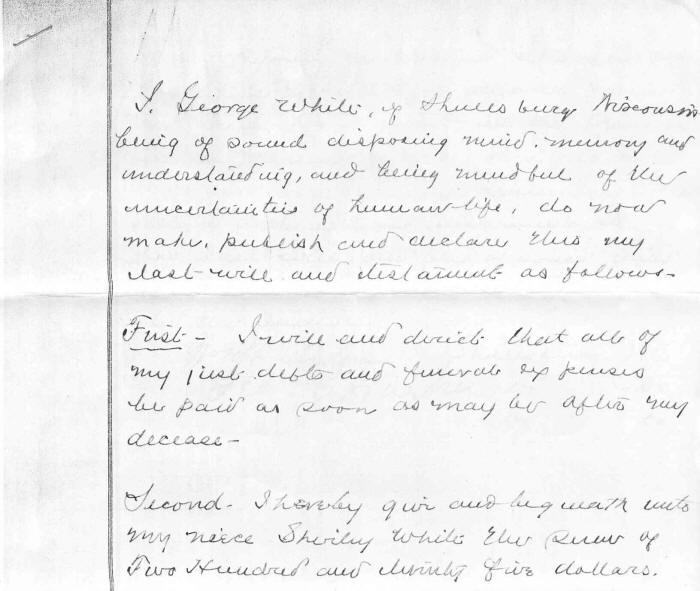 I, George White, of Shullsburg Wisconsin
being of sound disposing mind, memory and
understanding, and being mindful of the
uncertainties of human life, do now
make, publish and declare this my
last will and testament as follows-
First- I will and direct that all of
my just debts and funeral expenses
be paid as soon as may be after my
decease-
Second- I hereby give and bequeath unto
my niece Shirley White the sum of
Two Hundred and twenty five dollars.